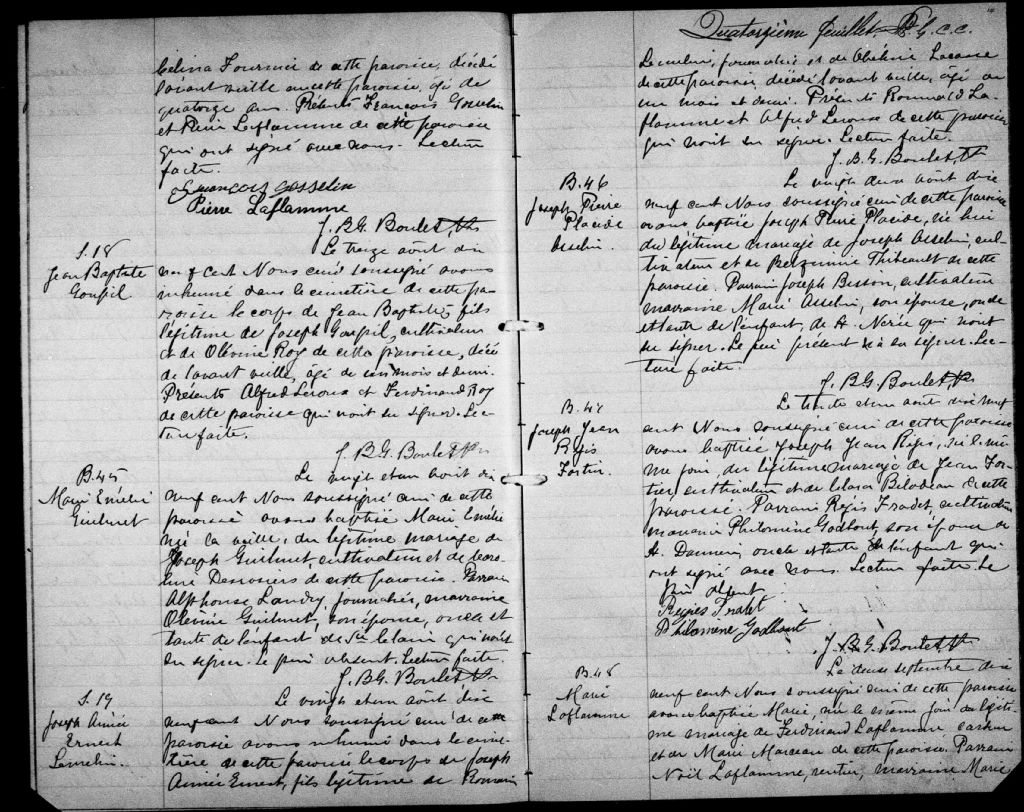 Célina Fournier de cette paroisse, décédé
l'avant veille en cette paroisse, âgé de
quatorze ans. Présents François Gosselin
et Pierre Laflamme de cette paroisse
qui ont signé avec nous. Lecture
faite.
François Gosselin
Pierre Laflamme
J. B. G. Boulet, Ptre
S. 18
Jean Baptiste
Goupil
Le treize août dix
neuf cent Nous curé soussigné avons
inhumé dans le cimetière de cette pa-
roisse le corps de Jean Baptiste, fils
légitime de Joseph Goupil, cultivateur
et de Olévine Roy de cette paroisse, décé-
dé l'avant veille, âgé de un mois et demi.
Présents Alfred Leroux et Ferdinand Roy
de cette paroisse qui n'ont su signer. Lec-
ture faite.
J. B. G. Boulet Ptre
B. 45
Marie Emélie
Guilmet
Le vingt et un août dix
neuf cent Nous soussigné curé de cette
paroisse avons baptisé Marie Emélie
née la veille, du légitime mariage de
Joseph Guilmet, cultivateur et de
Desrosiers de cette paroisse. Parrain
Alphonse Landry, journalier, marraine
Olévine Guilmet, son épouse, oncle et
tante de l'enfant de Ste Claire qui n'ont
su signer. Le père absent. Lecture faite.
J. B. G. Boulet Ptre
S. 19
Joseph Aimée
Ernest
Lemelin.
Le vingt et un août dix
neuf cent Nous soussigné curé de cette
paroisse avons inhumé dans le cime-
tière de cette paroisse le corps de Joseph
Aimée Ernest, fils légitime de Romain
Quatorzième feuillet. P. G. C. C.
Lemelin, journalier et de Lacasse
de cette paroisse, décédé l'avant veille, âgé de
un mois et demi. Présents Romuald La-
flamme et Alfred Leroux de cette paroisse
qui n'ont su signer. Lecture faite.
J. B. G. Boulet, Ptre
B. 46
Joseph Pierre
Placide
Asselin.
Le vingt deux août dix
neuf cent Nous soussigné curé de cette paroisse
avons baptisé Joseph Pierre Placide, né hier
du légitime mariage de Joseph Asselin, cul-
tivateur et de Thibeault de cette
paroisse. Parrain Joseph Bisson, cultivateur
marraine Marie Asselin, son épouse, oncle
et tante de l'enfant, de St. Nérée qui n'ont
su signer. Le père présent n'a su signer. Lec-
ture faite.
J. B. G. Boulet, Ptre
B. 47
Joseph Jean
Régis
Fortin.
Le trente et un août dix neuf
cent Nous soussigné curé de cette paroisse
avons baptisé Joseph Jean Régis, né le mê-
me jour, du légitime mariage de Jean For-
tin, cultivateur et de Clara Bilodeau de cette
paroisse. Parrain Régis Fradet, cultivateur
marraine Philomène Godbout, son épouse de
St. Damien, oncle et tante de l'enfant qui
ont signé avec nous. Lecture faite. Le
père absent
Régies Fradet
Philomène Godbout
J. B. G. Boulet, Ptre
B. 48
Marie
Laflamme
Le deux septembre dix
neuf cent Nous soussigné curé de cette paroisse
avons baptisé Marie, née le même jour du légiti-
me mariage de Ferdinand Laflamme,
et de Marie Marceau de cette paroisse. Parrain
Noël Laflamme, rentier, marraine Marie